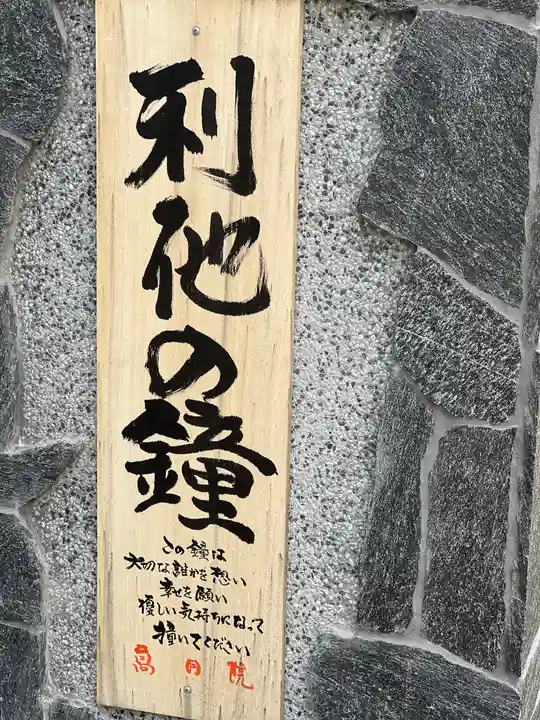 利他の鐘
この鐘は
大切な誰かを想い
幸せを願い
優しい気持ちになって
撞いてください
高月院